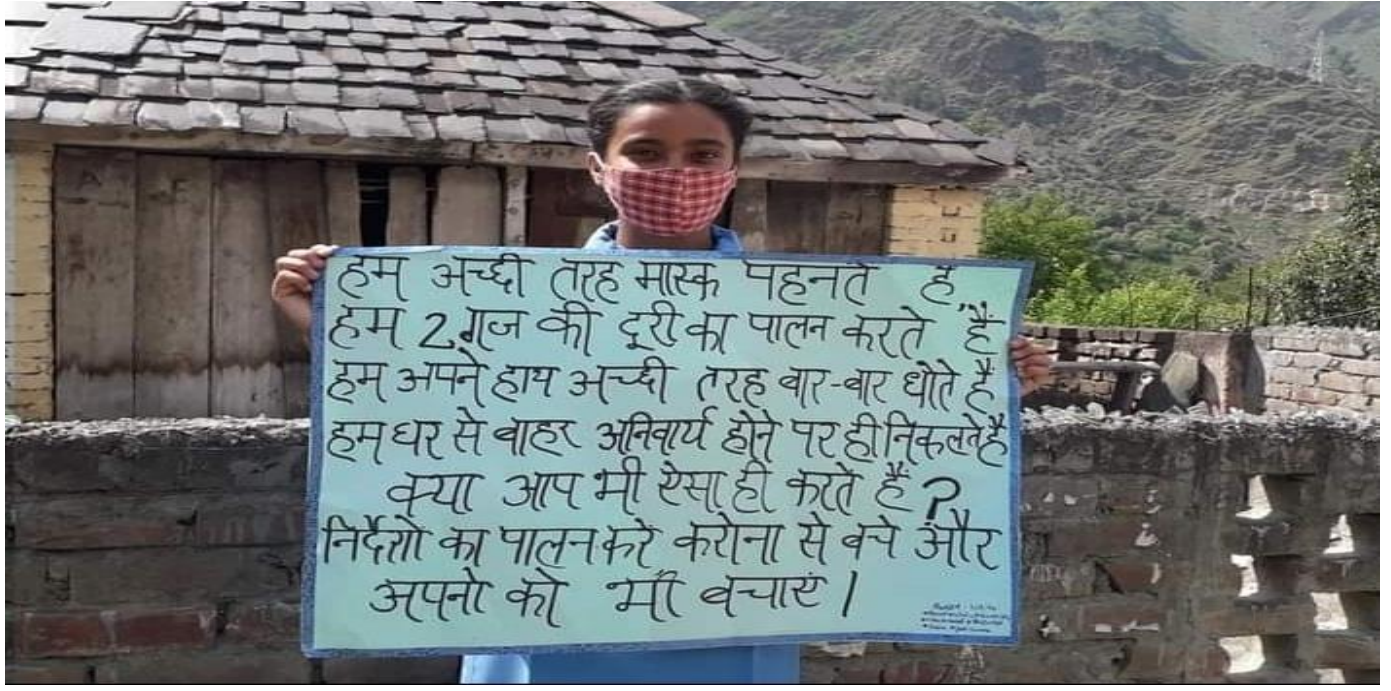 हम अच्छी तरह मास्क पहनते हैं,
हम 2 गज की दूरी का पालन करते हैं
हम अपने हाथ अच्छी तरह बार-बार धोते हैं
हम घर से बाहर अनिवार्य होने पर ही निकलते हैं
क्या आप भी ऐसा ही करते हैं?
निर्देशो का पालन करे करोना से बचे और
अपनो को भी बचाएं।